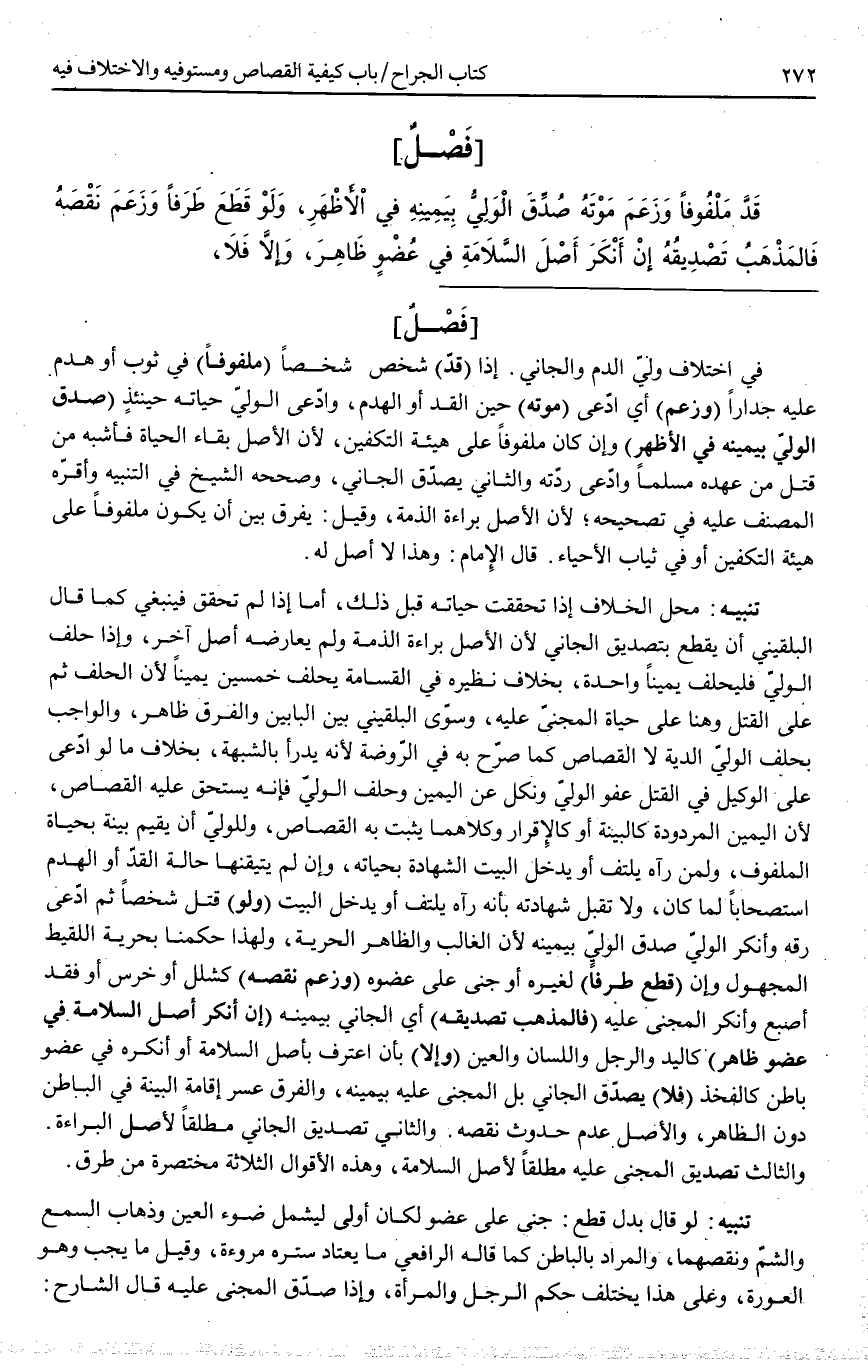 ٢٧٢ كتاب الجراح/ باب كيفية القصاص ومستوفيه والاختلاف فيه
[فَصْلٌ]
قَدَّ مَلْفُوفاً وَزَعَمَ مَوْتَهُ صُدِّقَ الْوَلِيُّ بِيَمِينِهِ في الْأَظْهَرِ، وَلَوْ قَطَعَ طَرَفاً وَزَعَمَ نَقْصَهُ
فَالمَذْهَبُ تَصْدِيقُهُ إنْ أَنْكَرَ أَصْلَ السَّلَامَةِ في عُضْوٍ ظَاهِرَ، وَإلَّا فَلَا،
[فَصْلٌ]
في اختلاف وليّ الدم والجاني. إذا (قدّ) شخص شخصاً (ملفوفاً) في ثوب أو هدم
عليه جداراً (وزعم) أي ادّعى (موته) حين القد أو الهدم، وادّعى الوليّ حياته حينئذٍ (صدق
الوليّ بيمينه في الأظهر) وإن كان ملفوفاً على هيئة التكفين، لأن الأصل بقاء الحياة فأشبه من
قتل من عهده مسلماً وادّعى ردّته والثاني يصدّق الجاني، وصححه الشيخ في التنبيه وأقرّه
المصنف عليه في تصحيحه؛ لأن الأصل براءة الذمة، وقيل: يفرق بين أن يكون ملفوفاً على
هيئة التكفين أو في ثياب الأحياء. قال الإمام: وهذا لا أصل له.
تنبيه: محل الخلاف إذا تحققت حياته قبل ذلك، أما إذا لم تحقق فينبغي كما قال
البلقيني أن يقطع بتصديق الجاني لأن الأصل براءة الذمة ولم يعارضه أصل آخر، وإذا حلف
الوليّ فليحلف يميناً واحدة، بخلاف نظيره في القسامة يحلف خمسين يميناً لأن الحلف ثم
على القتل وهنا على حياة المجنيّ عليه، وسوّى البلقيني بين البابين والفرق ظاهر، والواجب
بحلف الوليّ الدية لا القصاص كما صرّح به في الرّوضة لأنه يدرأ بالشبهة، بخلاف ما لو ادّعى
على الوكيل في القتل عفو الوليّ ونكل عن اليمين وحلف الوليّ فإنه يستحق عليه القصاص،
لأن اليمين المردودة كالبينة أو كالإقرار وكلاهما يثبت به القصاص، وللوليّ أن يقيم بينة بحياة
الملفوف، ولمن رآه يلتف أو يدخل البيت الشهادة بحياته، وإن لم يتيقنها حالة القدّ أو الهدم
استصحاباً لما كان، ولا تقبل شهادته بأنه رآه يلتف أو يدخل البيت (ولو) قتل شخصاً ثم ادّعى
رقه وأنكر الوليّ صدق الوليّ بيمينه لأن الغالب والظاهر الحرية، ولهذا حكمنا بحرية اللقيط
المجهول وإن (قطع طرفاً) لغيره أو جنى على عضوه (وزعم نقصه) كشلل أو خرس أو فقد
أصبع وأنكر المجنى عليه (فالمذهب تصديقه) أي الجاني بيمينه (إن أنكر أصل السلامة في
عضو ظاهر) كاليد والرجل واللسان والعين (وإلا) بأن اعترف بأصل السلامة أو أنكره في عضو
باطن كالفخذ (فلا) يصدّق الجاني بل المجنى عليه بيمينه، والفرق عسر إقامة البينة في الباطن
دون الظاهر، والأصل عدم حدوث نقصه. والثاني تصديق الجاني مطلقاً لأصل البراءة.
والثالث تصديق المجنى عليه مطلقاً لأصل السلامة، وهذه الأقوال الثلاثة مختصرة من طرق.
تنبيه: لو قال بدل قطع: جنى على عضو لكان أولى ليشمل ضوء العين وذهاب السمع
والشمّ ونقصهما، والمراد بالباطن كما قاله الرافعي ما يعتاد ستره مروءة، وقيل ما يجب وهو
العورة، وعلى هذا يختلف حكم الرجل والمرأة، وإذا صدّق المجنى عليه قال الشارح: